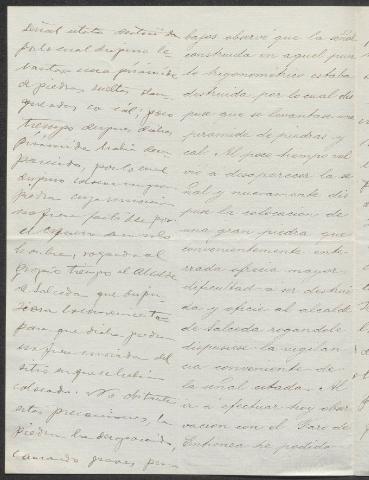 señal estaba destruida
por lo cual dispuse le-
vantar una pirámide
de piedras sueltas blan-
queadas con cal; poco
tiempo despues dicha
pirámide habia desa-
parecido, por lo cual
dispuse colocar una gran
piedra cuya remoción
no fuera factible por
el esfuerzo de un solo
hombre, rogando al
propio tiempo al Alcalde
de Salceda que dispu-
siera lo conveniente
para que dicha piedra
no fuera removida del
sitio en que se habia
colocado. No obstante
estas precauciones, la
piedra ha desaparecido,
causando graves per-
bajos observé que la señal
construida en aquel pun-
to trigonométrico estaba
destruida por lo cual dis-
puse que se levantase una
piramide de piedras y
cal. Al poco tiempo vol-
vió a desaparecer la se-
ñal y nuevamente dis-
puse la colocacion de
una gran piedra que
convenientemente ente-
rrada ofrecia mayor
dificultad a ser destrui-
da y oficié al alcalde
de Salceda rogandole
dispusiese la vigilan-
cia conveniente de
la señal citada. Al
ir á efectuar hoy obser-
vacion con el Faro de
he podido